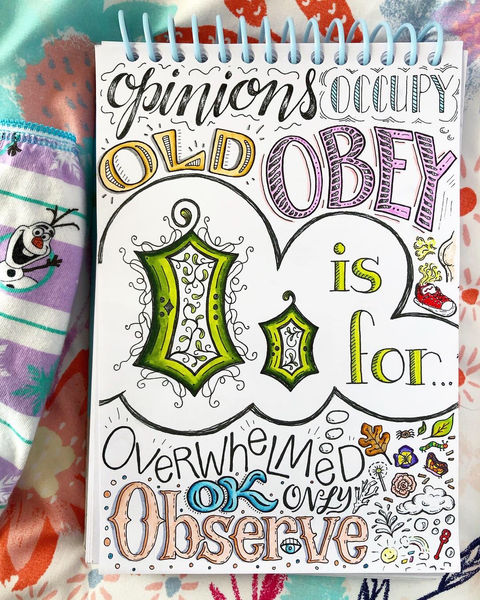 opinions OCCUPY
OLD OBEY
O o is
for...
OVERWHELMED
OK ONLY
Observe